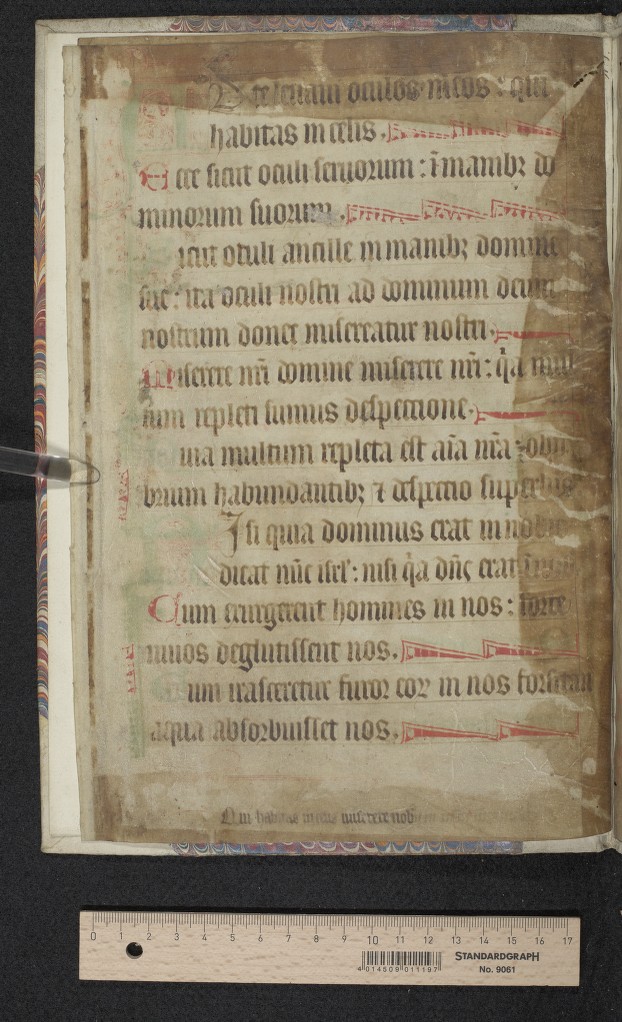 Ad te leuaui oculos meos : qui
habitas in celis .
Ecce sicut oculi seruorum : ĩ manibꝫ do
minorum suorum .
icut oculi ancille in manibꝫ domine
sue : ita oculi nostri ad dominum deum
nostrum donec misereatur nostri .
Miserere nr̃i domine miserere nr̃i : q̇a mul
tum repleti sumus despectione .
uia multum repleta est aĩa nr̃a : obp
brium habundantibꝫ ⁊ despectio superbis
isi quia dominus erat in nobis
dicat nũc isrl' : nisi q̇a dñs erat
Cum exurgerent homines in nos : forte
uiuos deglutissent nos .
um irasceretur furor eoꝝ in nos forsitan
aqua absorbuisset nos .
Qui habitas in celis miserere nob
0 1 2 3 4 5 6 7 8 9 10 11 12 13 14 15 16 17
STANDARDGRAPH
4 014509 011197
No. 9061